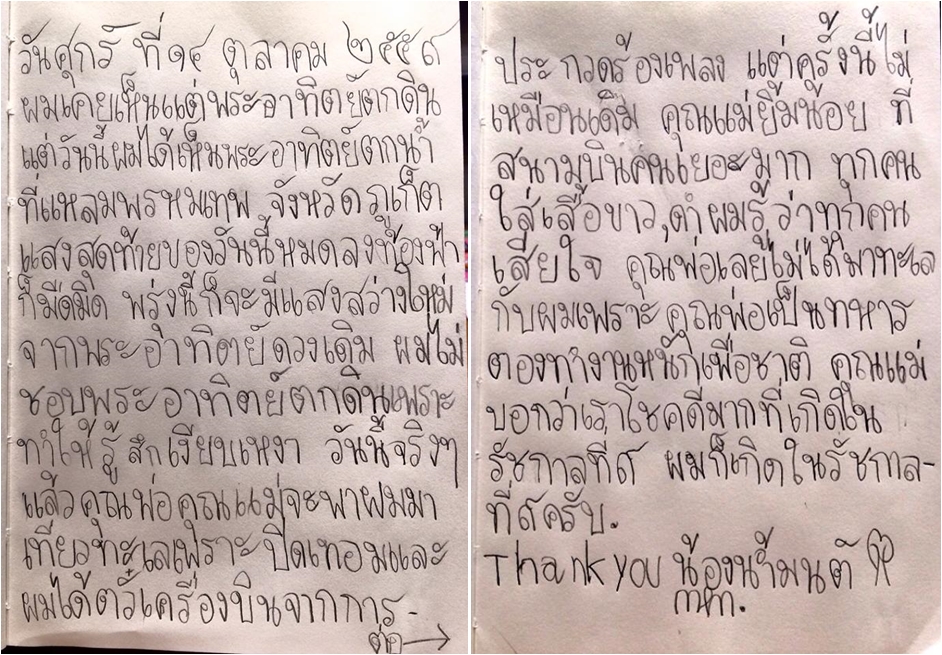 วันศุกร์ ที่ ๑๔ ตุลาคม ๒๕๕๙
ผมเคยเห็นแต่พระอาทิตย์ตกดิน
แต่วันนี้ผมได้เห็นพระอาทิตย์ตกน้ำ
ที่แหลมพรหมเทพ จังหวัดภูเก็ต
แสงสุดท้ายของวันนี้หมดลงท้องฟ้า
ก็มืดมิด พรุ่งนี้ก็จะมีแสงสว่างใหม่
จากพระอาทิตย์ดวงเดิม ผมไม่
ชอบพระอาทิตย์ตกดินเพราะ
ทำให้รู้สึกเงียบเหงา วันนี้จริงๆ
แล้วคุณพ่อคุณแม่จะพาผมมา
เที่ยวทะเลเพราะปิดเทอมและ
ผมได้ตั๋วเครื่องบินจากการ-
ต่อ→
ประกวดร้องเพลง แต่ครั้งนี้ไม่
เหมือนเดิม คุณแม่ยิ้มน้อย ที่
สนามบินคนเยอะมาก ทุกคน
ใส่เสื้อขาว,ดำผมรู้ว่าทุกคน
เสียใจ คุณพ่อเลยไม่ได้มาทะเล
กับผมเพราะคุณพ่อเป็นทหาร
ตองทำงานหนักเพื่อชาติ คุณแม่
บอกว่าเราโชคดีมากที่เกิดใน
รัชกาลที่๙ ผมก็เกิดในรัชกาล-
ที่๙ครับ.
Thank you น้องน้ำมนต์